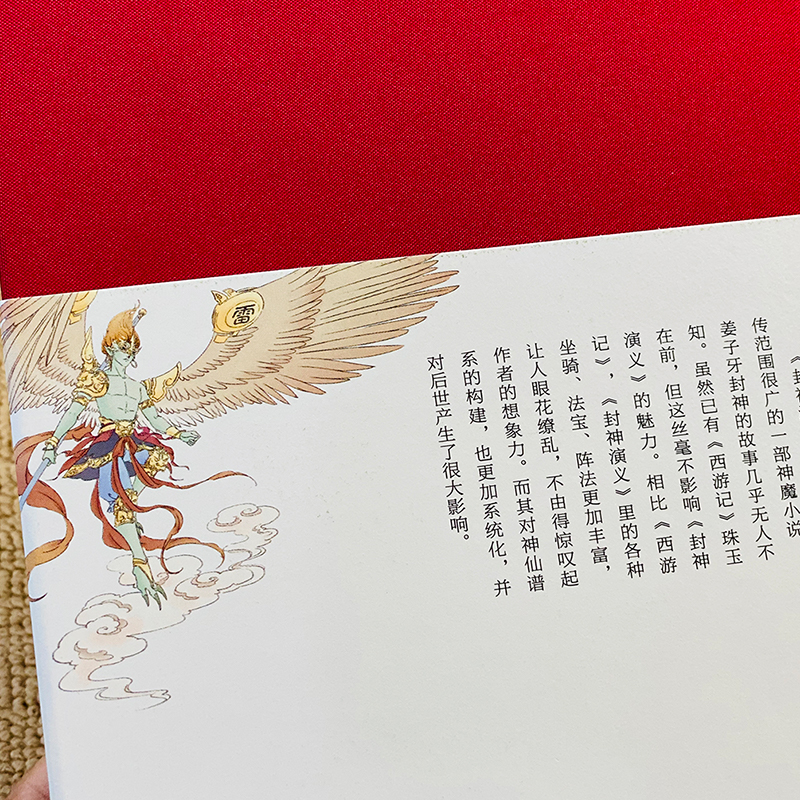 《封神
传范围很广的一部神魔小说
姜子牙封神的故事几乎无人不
知。虽然已有《西游记》珠玉
在前，但这丝毫不影响《封神
演义》的魅力。相比《西游
记》，《封神演义》里的各种
坐骑、法宝、阵法更加丰富，
让人眼花缭乱，不由得惊叹起
作者的想象力。而其对神仙谱
系的构建，也更加系统化，并
对后世产生了很大影响。
雷